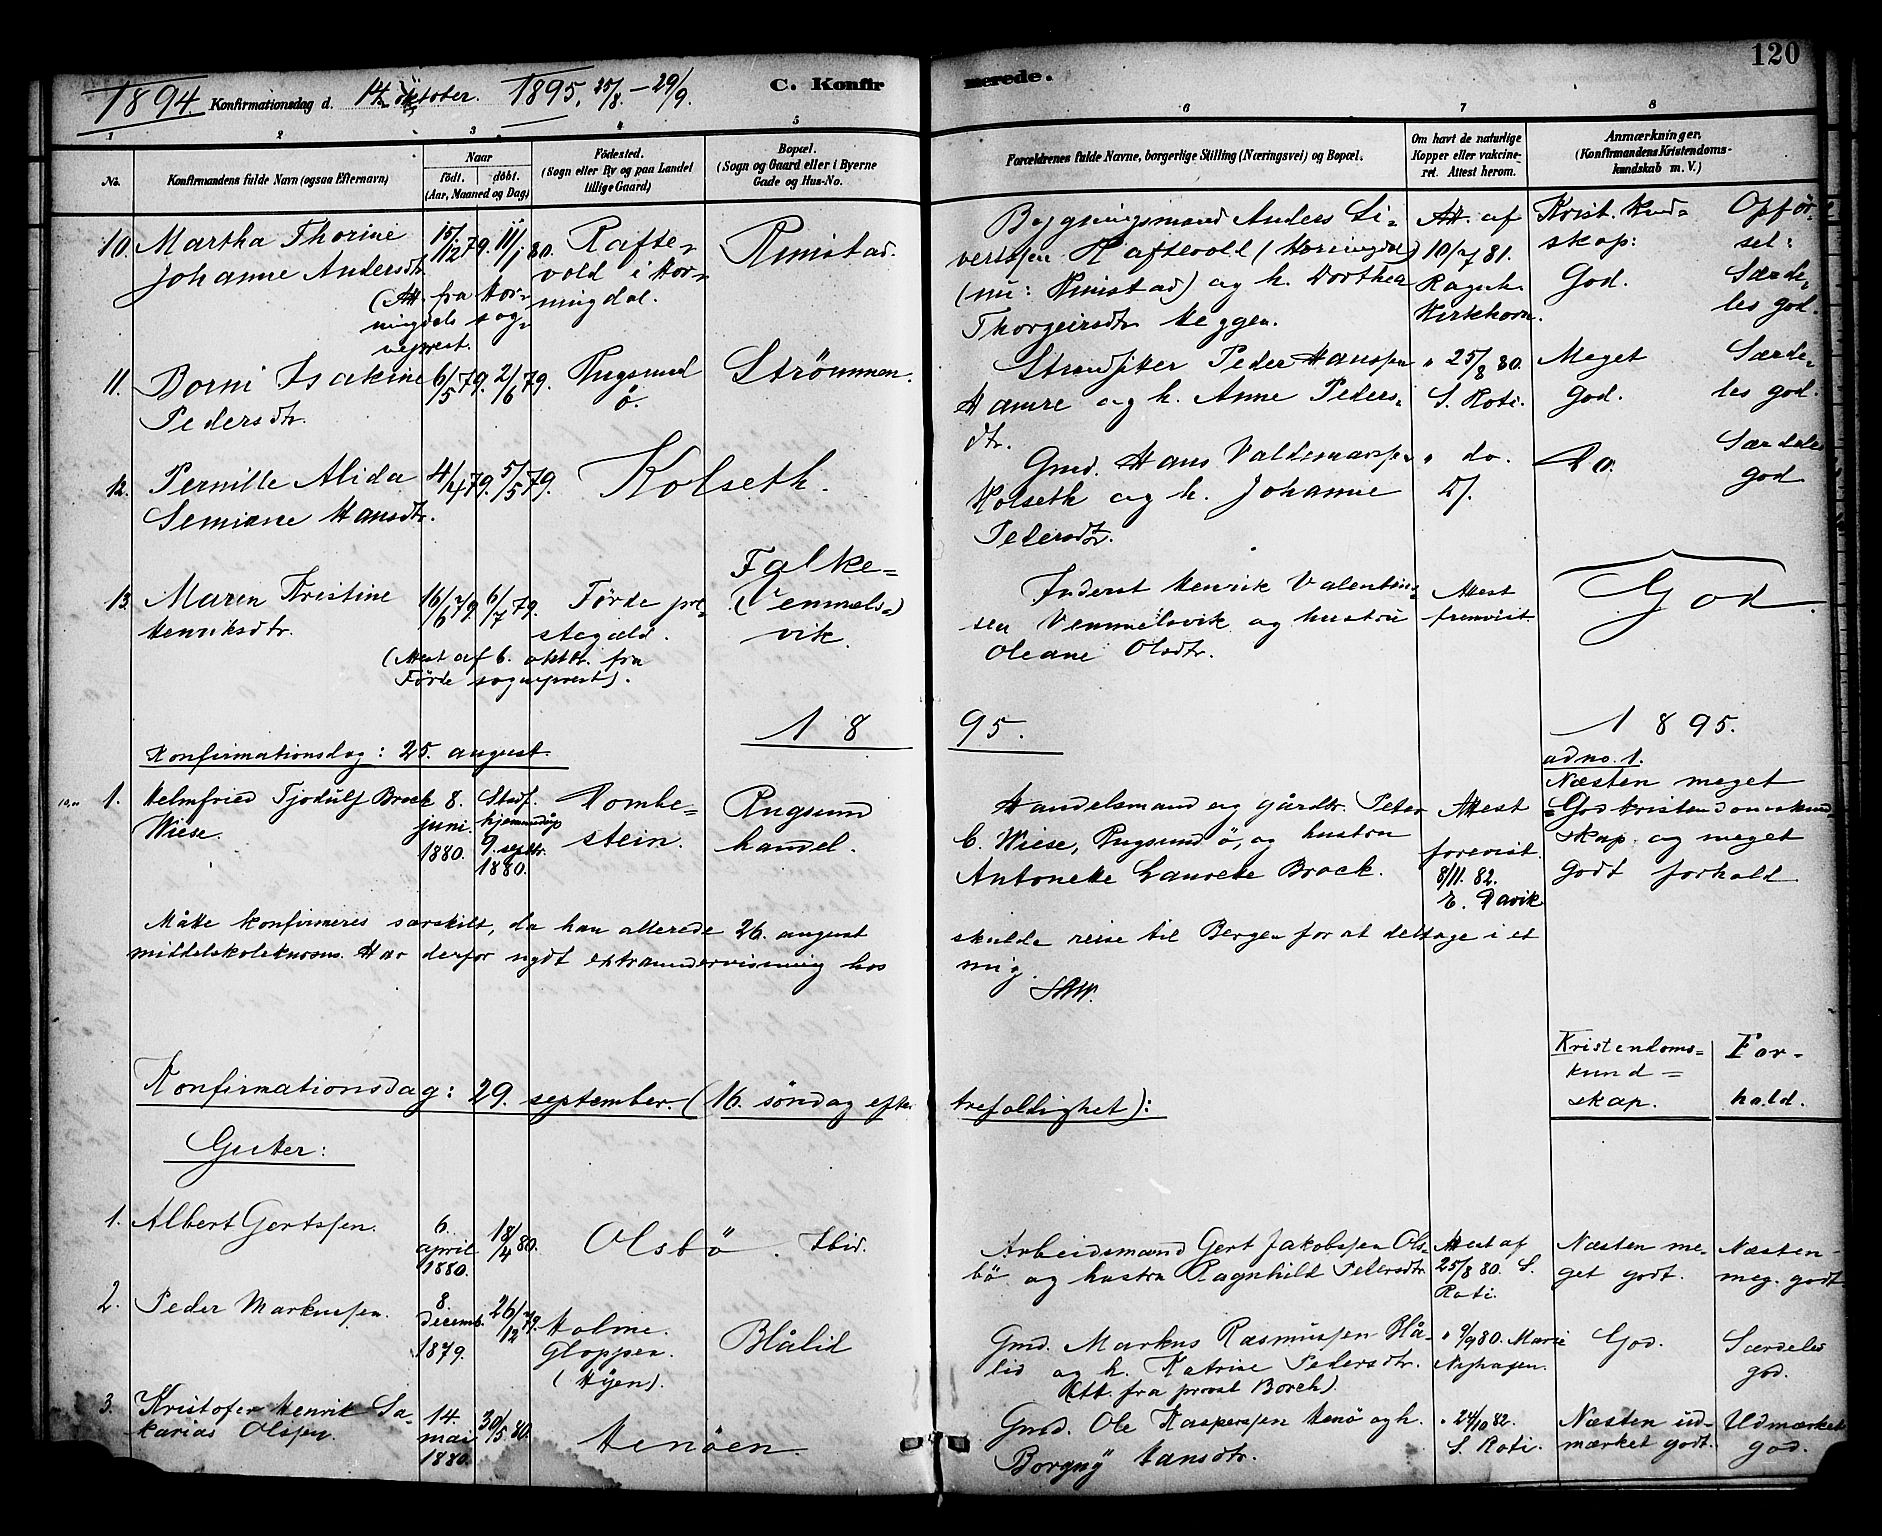 120
1894. Konfirmationsdag d. 14 oktober. 1895, 25/8. – 29/9. C. Konfirmerede.
1 2 3 4 5 6 7 8
No.
Konfirmandens fulde Navn (ogsaa Efternavn)
Naar
födt. döbt.
(Aar, Maaned og Dag)
Födested.
(Sogn eller By og paa Landet
tillige Gaard)
Bopæl.
(Sogn og Gaard eller i Byerne
Gade og Hus-No.
Forældrenes fulde Navne, borgerlige Stilling (Næringsvei) og Bopæl.
Om havt de naturlige
Kopper eller vakcine-
ret. Attest herom.
Anmærkninger.
(Konfirmandens Kristendoms-
kundskab m. V.)
10. Martha Thorine
Johanne Andersdtr.
(Att. fra Hor-
ningdals sog-
neprest.
15/12 79. 11/1 80.
Rafte-
vold i Hor-
ningdal.
Rimstad.
Bygningsmand Anders Si-
vertssen Raftevold (Horningdal)
(nu: Rimstad) og h. Dorthea
Thorgeirsdtr. Heggen.
Att. af
10/7 81.
Ragnh.
Kirkhorn.
Krist. kund-
skap:
God.
Opför-
sel:
Særde-
les god.
11. Borni Isakine
Pedersdtr.
6/5 79. 2/6 79.
Rugsund
ö.
Strömmen.
Strandsitter Peder Hanssen
Hamre og h. Anne Peders-
dtr.
" 25/8 80.
S. Roti.
Meget
God.
Særde-
les god.
12. Pernille Alida
Semine Hansdtr.
4/4 79. 5/5 79.
Kolseth.
Gmd. Hans Valdemarss.
Kolseth og h. Johanne
Pedersdtr.
" do.
D/.
Do.
Særdeles
god
13. Maren Kristine
Henriksdtr.
(Attest af 6. oktbr. fra
Förde sogneprest).
16/6 79. 6/7 79.
Förde pre-
stegæld.
Falke-
(Vemmels-)
vik.
Inderst Henrik Valentin-
sen Vemmelsvik og hustru
Oleane Olsdtr.
Attest
fremvist
God.
1895.
1895.
Konfirmationsdag: 25. august.
ad no. 1.
1. Helmfried Tjodulf Brock
Wiese.
8.
juni
1880.
Stadf.
hjemmedåp
9. septbr.
1880.
Dombe-
stein.
Rugsund
handel.
Handelsmand og gårdbr. Peter
C. Wiese, Rugsund ö, og hustru
Antonette Laurette Brock.
Attest
forevist.
8/11. 82.
E. Davik
Næsten meget
God kristendomskund-
skap og meget
godt forhold
Måtte konfirmeres særskilt, da han allerede 26. august skulde reise til Bergen for at deltage i et
middelskolekursus. Har derfor nydt extraundervisning hos mig.
Konfirmationsdag: 29. september. (16. söndag efter trefoldighet):
Kristendoms-
kund-
skap.
For-
hold.
Gutter:
1. Albert Gertssen.
6.
april
1880.
18/4 80.
Olsbö. Ibid.
Arbeidsmand Gert Jakobssen Ols-
bö og hustru Ragnhild Pedersdtr.
Attest af
25/8 80. S.
Roti.
Næsten me-
get godt.
Næsten
meg. godt
2. Peder Markussen.
8.
decemb.
1879.
26/12 79.
Holme.
Gloppen.
(Hyen).
Blålid
Gmd. Markus Rasmussen Blå-
lid og h. Katrine Pedersdtr.
(Att. fra provst Borch).
" 9/9 80. Marie
Nyhagen.
God.
Særdeles
god.
3. Kristofer Henrik Sa-
karias Olssen.
14.
mai
1880.
30/5 80.
Henöen.
Gmd. Ole Kasperssen Henö og h.
Borgny Hansdtr.
" 24/10 82.
S. Roti.
Næsten ud-
mærket godt.
Udmærket
god.